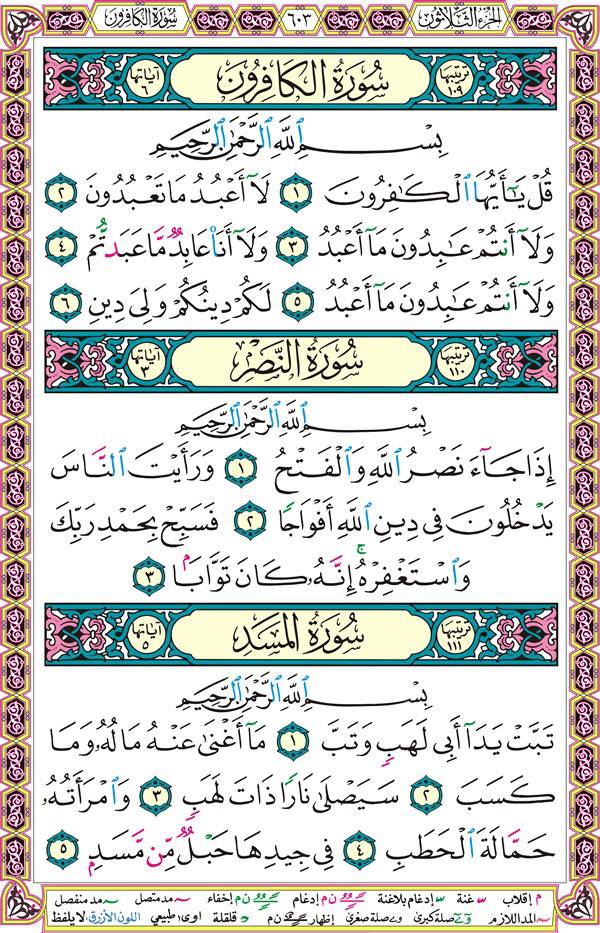 الجزء الثلاثون ٦٠٣ سورة الكافرون
ترتيبها ١٠٩ سُورَةُ الكَافِرُون آياتها ٦
بِسْمِ ٱللَّهِ ٱلرَّحْمَٰنِ ٱلرَّحِيمِ
قُلْ يَٰٓأَيُّهَا ٱلْكَٰفِرُونَ ١ لَآ أَعْبُدُ مَا تَعْبُدُونَ ٢
وَلَآ أَنتُمْ عَٰبِدُونَ مَآ أَعْبُدُ ٣ وَلَآ أَنَا۠ عَابِدٌ مَّا عَبَدتُّمْ ٤
وَلَآ أَنتُمْ عَٰبِدُونَ مَآ أَعْبُدُ ٥ لَكُمْ دِينُكُمْ وَلِىَ دِينِ ٦
ترتيبها ١١٠ سُورَةُ النَّصْرِ آياتها ٣
بِسْمِ ٱللَّهِ ٱلرَّحْمَٰنِ ٱلرَّحِيمِ
إِذَا جَآءَ نَصْرُ ٱللَّهِ وَٱلْفَتْحُ ١ وَرَأَيْتَ ٱلنَّاسَ
يَدْخُلُونَ فِى دِينِ ٱللَّهِ أَفْوَاجًا ٢ فَسَبِّحْ بِحَمْدِ رَبِّكَ
وَٱسْتَغْفِرْهُ ۚ إِنَّهُۥ كَانَ تَوَّابَۢا ٣
ترتيبها ١١١ سُورَةُ المَسَدِ آياتها ٥
بِسْمِ ٱللَّهِ ٱلرَّحْمَٰنِ ٱلرَّحِيمِ
تَبَّتْ يَدَآ أَبِى لَهَبٍ وَتَبَّ ١ مَآ أَغْنَىٰ عَنْهُ مَالُهُۥ وَمَا
كَسَبَ ٢ سَيَصْلَىٰ نَارًا ذَاتَ لَهَبٍ ٣ وَٱمْرَأَتُهُۥ
حَمَّالَةَ ٱلْحَطَبِ ٤ فِى جِيدِهَا حَبْلٌ مِّن مَّسَدٍۭ ٥
م إقلاب غنة إدغام بلاغنة ن م إدغام ن م إخفاء مد متصل مد منفصل
المد اللازم صلة كبرى صلة صغرى إظهار ن م قلقلة اوى: طبيعي اللون الأزرق: لا يلفظ